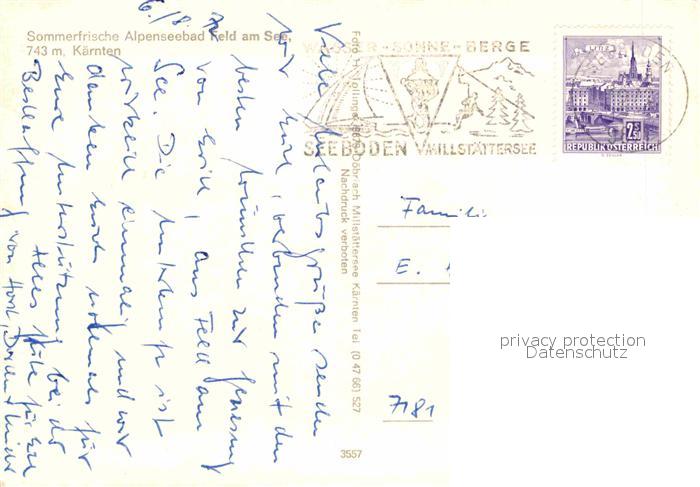 Sommerfrische Alpenseebad Feld am See,
743 m. Kärnten
6./8.
Viele Urlaubsgrüße senden
wir Euch, verbunden mit den
besten Wünschen zur Genesung
von Erich, aus Feld am
See. Die Unterkunft ist
wirklich einmalig und wir
danken Euch nochmals für
Eure Unterstützung bei der
Beschaffung. Alles Gute für Euch
von Horst,
Foto H. Döbriach Millstättersee Kärnten Tel (0 47 66) 527
Nachdruck verboten
WASSER-SONNE-BERGE
SEEBODEN MILLSTÄTTERSEE
LINZ
2.50
REPUBLIK ÖSTERREICH
Famili
E.
7181
3557
privacy protection
Datenschutz